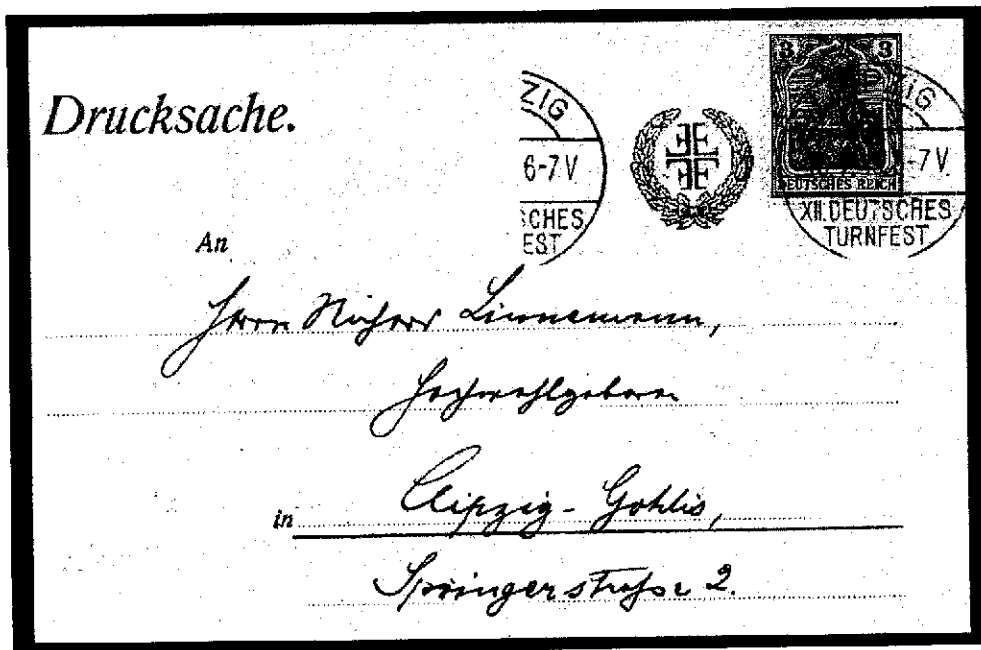 Drucksache.
ZIG
6-7 V
SCHES
EST
3 3
DEUTSCHES REICH
IG
-7 V.
XII. DEUTSCHES
TURNFEST
An
Herrn Richard Linnemann,
Hochwohlgeboren
in Leipzig-Gohlis,
Springerstraße 2.